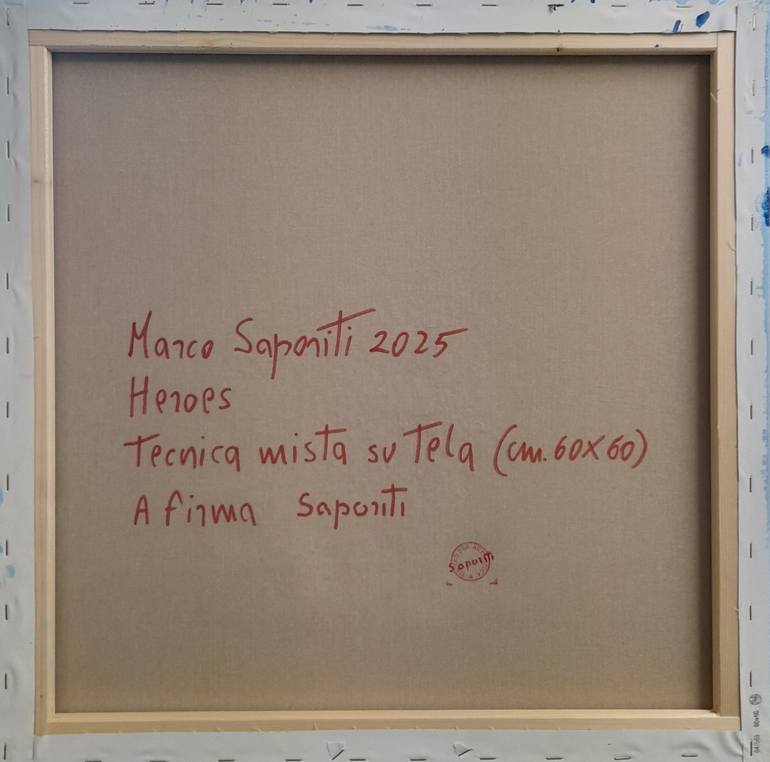 Marco Saporiti 2025
Heroes
Tecnica mista su Tela (cm. 60X60)
A firma Saporiti
Saporiti